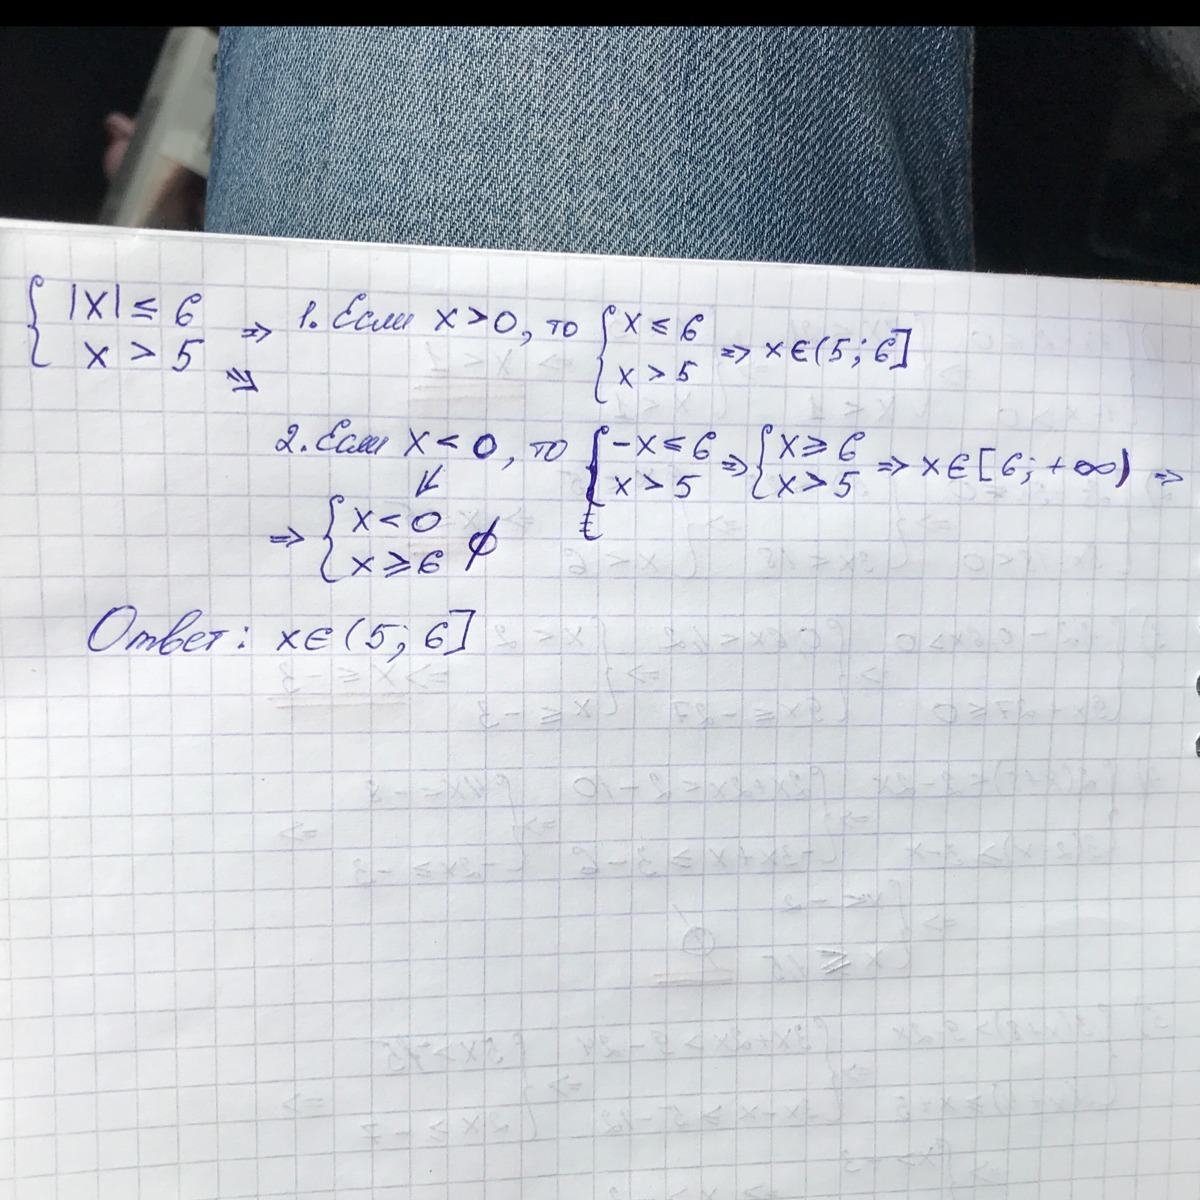 { |x| ≤ 6
x > 5 ⇒ 1. Если x > 0, то { x ≤ 6
x > 5 ⇒ x ∈ (5; 6]
⇒ 2. Если x < 0, то { -x ≤ 6
x > 5 ⇒ { x ≥ 6
x > 5 ⇒ x ∈ [6; +∞) ⇒
⇒ { x < 0
x ≥ 6 ∅
Ответ: x ∈ (5; 6]